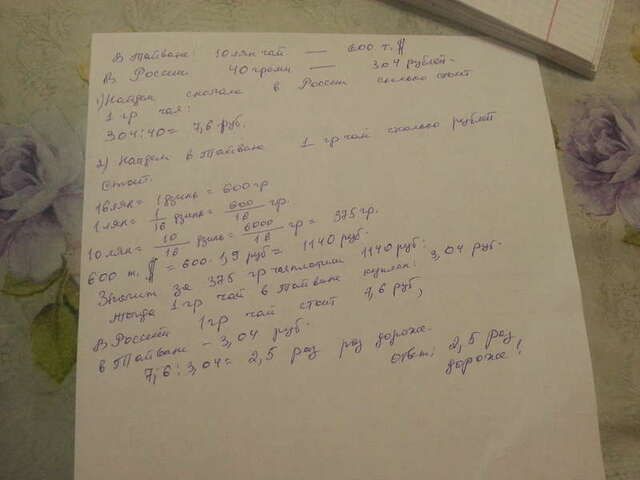 В Тайване: 10 лян чай — 600 т.$
В России 40 грамм — 304 рублей.
1) Найдем сначала в России сколько стоит
1 гр чая:
304:40 = 7,6 руб.
2) Найдем в Тайване 1 гр чай сколько рублей
стоит.
16 лян = 1 дзинь = 600 гр
1 лян = 1/16 дзинь = 600/16 гр.
10 лян = 10/16 дзинь = 6000/16 гр = 375 гр.
600 т. $ = 600 · 1,9 руб = 1140 руб.
Значит за 375 гр 1140 руб.
тогда 1 гр чай в Тайване 3,04 руб.
В России 1 гр чай стоит 7,6 руб,
в Тайване – 3,04 руб.
7,6 : 3,04 = 2,5 раз раз дороже.
Ответ: 2,5 раз
дороже!